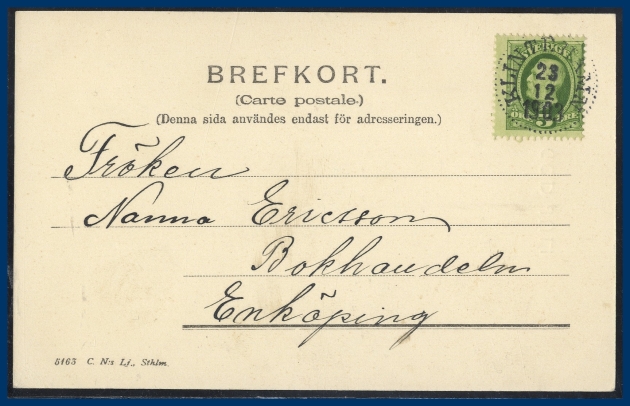 BREFKORT.
(Carte postale.)
(Denna sida användes endast för adresseringen.)
23
12
Fröken
Nanna Ericsson
Bokhandeln
Enköping
5163 C. N:s Lj., Sthlm.